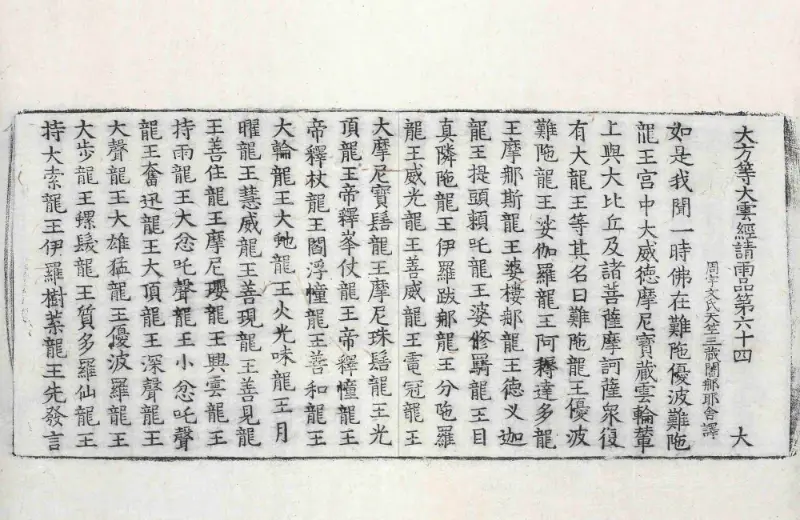 大方等大雲經請雨品第六十四 大
周宇文氏天竺三藏闍那耶舍譯
如是我聞一時佛在難陁優波難陁
龍王宫中大威徳摩尼寶藏雲輪輦
上與大比丘及諸菩薩摩訶薩衆復
有大龍王等其名曰難陁龍王優波
難陁龍王娑伽羅龍王阿耨達多龍
王摩那斯龍王婆樓那龍王徳义迦
龍王提頭頼吒龍王婆修羈龍王目
真隣陁龍王伊羅跋那龍王分陁羅
龍王威光龍王善威龍王電冠龍王
大摩尼寶髻龍王摩尼珠髻龍王光
頂龍王帝釋峯仗龍王帝釋憧龍王
帝釋杖龍王閻浮憧龍王善和龍王
大輪龍王大虵龍王火光味龍王月
曜龍王慧威龍王善現龍王善見龍
王善住龍王摩尼瓔龍王興雲龍王
持雨龍王大忿吒聲龍王小忿吒聲
龍王奮迅龍王大頂龍王深聲龍王
大聲龍王大雄猛龍王優波羅龍王
大步龍王螺髮龍王質多羅仙龍王
持大索龍王伊羅樹葉龍王先發言